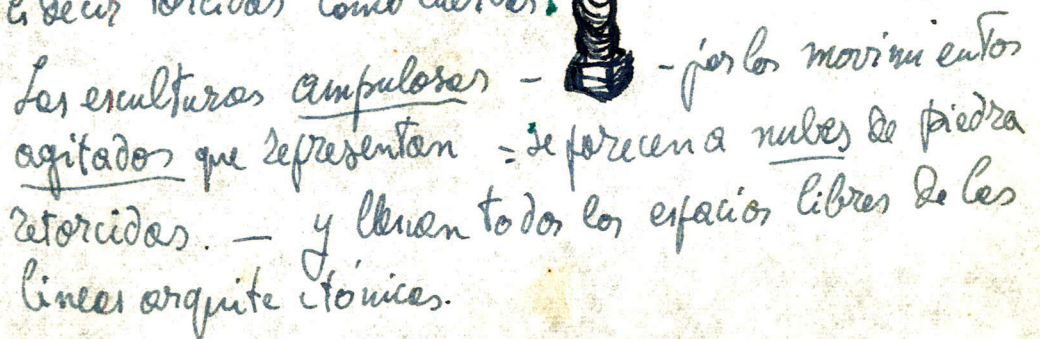 es decir torcidas como cuerdas.
Las esculturas ampulosas - - por los movimientos
agitados que representan = se parecen a nubes de piedra
retorcidas. — y llenan todos los espacios libres de las
lineas arquitectónicas.